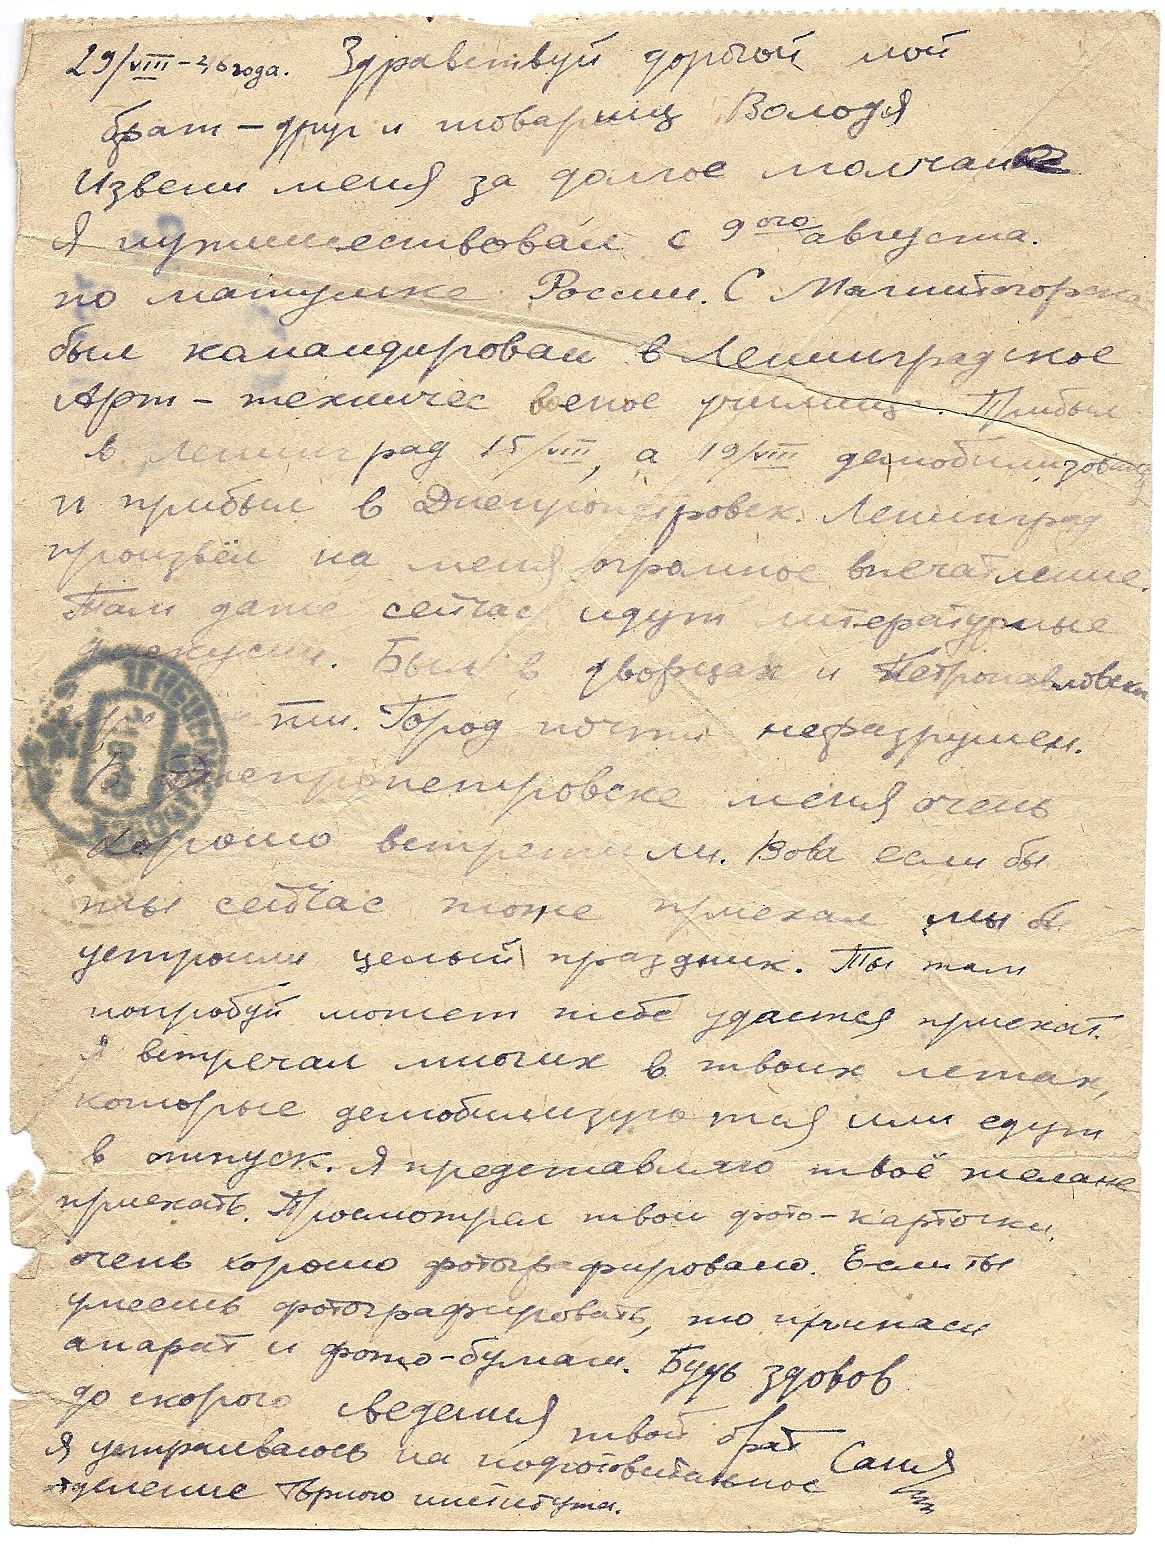 29/VIII-46 года. Здравствуй дорогой мой
брат - друг и товарищ Володя
Извени меня за долгое молчание
Я путишествовал с 9ого августа.
по матушке России. С Магнитогорска
был камандирован в Ленинградское
Арт-техничес кое училище. Прибыл
в Ленинград 15/VIII, а 19/VIII демобилизован
и прибыл в Днепропетровск. Ленинград
произвёл на меня огромное впечатление.
Там даже сейчас идут литературные
дискусии. Был в дворцах и Петропавловской
крепости. Город почти неразрушен.
В Днепропетровске меня очень
хорошо встретили. Вова если бы
ты сейчас тоже приехал мы бы
устроили целый праздник. Ты там
попробуй может тебе удастся приехат.
Я встречал многих в твоих летах,
которые демобилизуются или едут
в отпуск. Я представляю твоё желание
приехать. Просмотрел твои фото-карточки,
очень хорошо фотографировано. Если ты
умеешь фотографировать, то припаси
апарат и фото-бумаги. Будь здоров
до скорого сведения твой брат
Саша
Я устраиваюсь на подготовительное
отделение Горного института.